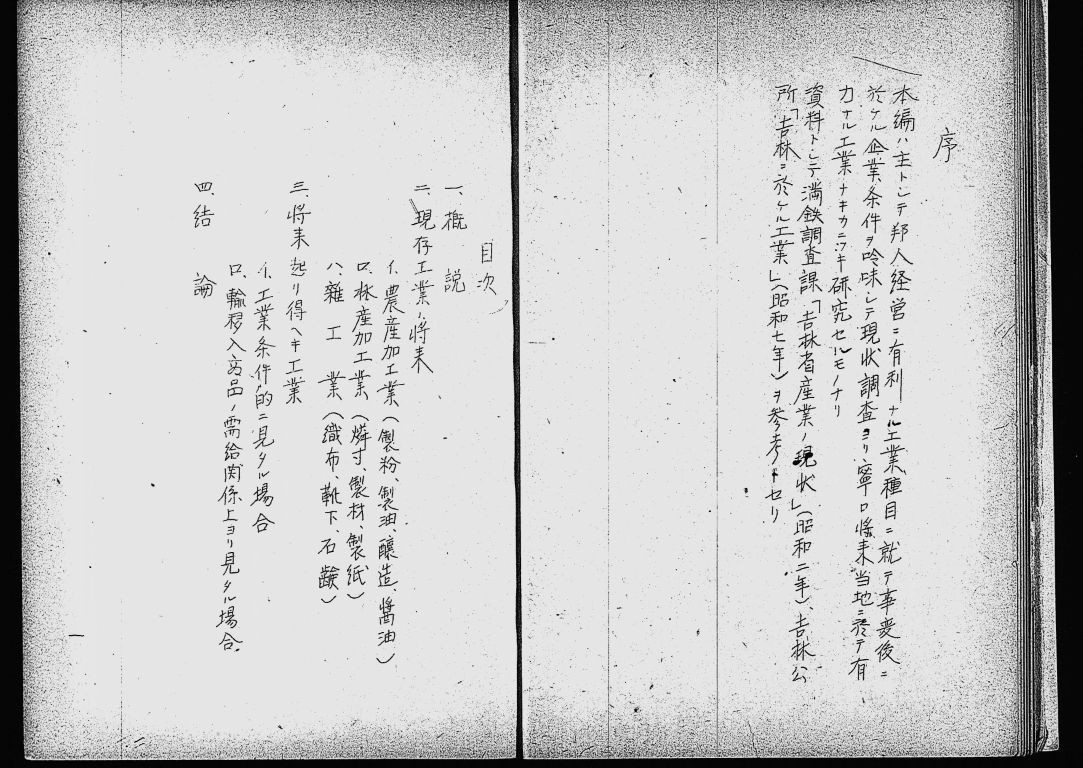 序
本編ハ主トシテ邦人経営ニ有利ナル工業種目ニ就テ事変後ニ
於ケル企業条件ヲ吟味シテ現状調査ヨリ寧ロ将来当地ニ於テ有
力ナル工業ナキカニツキ研究セルモノナリ
資料トシテ満鉄調査課「吉林省産業ノ現状」（昭和二年）、吉林公
所「吉林ニ於ケル工業」（昭和七年）ヲ参考トセリ
目次
一、概説
二、現存工業ノ将来
イ、農産加工業（製粉、製油、醸造、醤油）
ロ、林産加工業（燐寸、製材、製紙）
ハ、雑工業（織布、靴下、石鹸）
三、将来起リ得ヘキ工業
イ、工業条件的ニ見タル場合
ロ、輸移入商品ノ需給関係上ヨリ見タル場合
四、結論